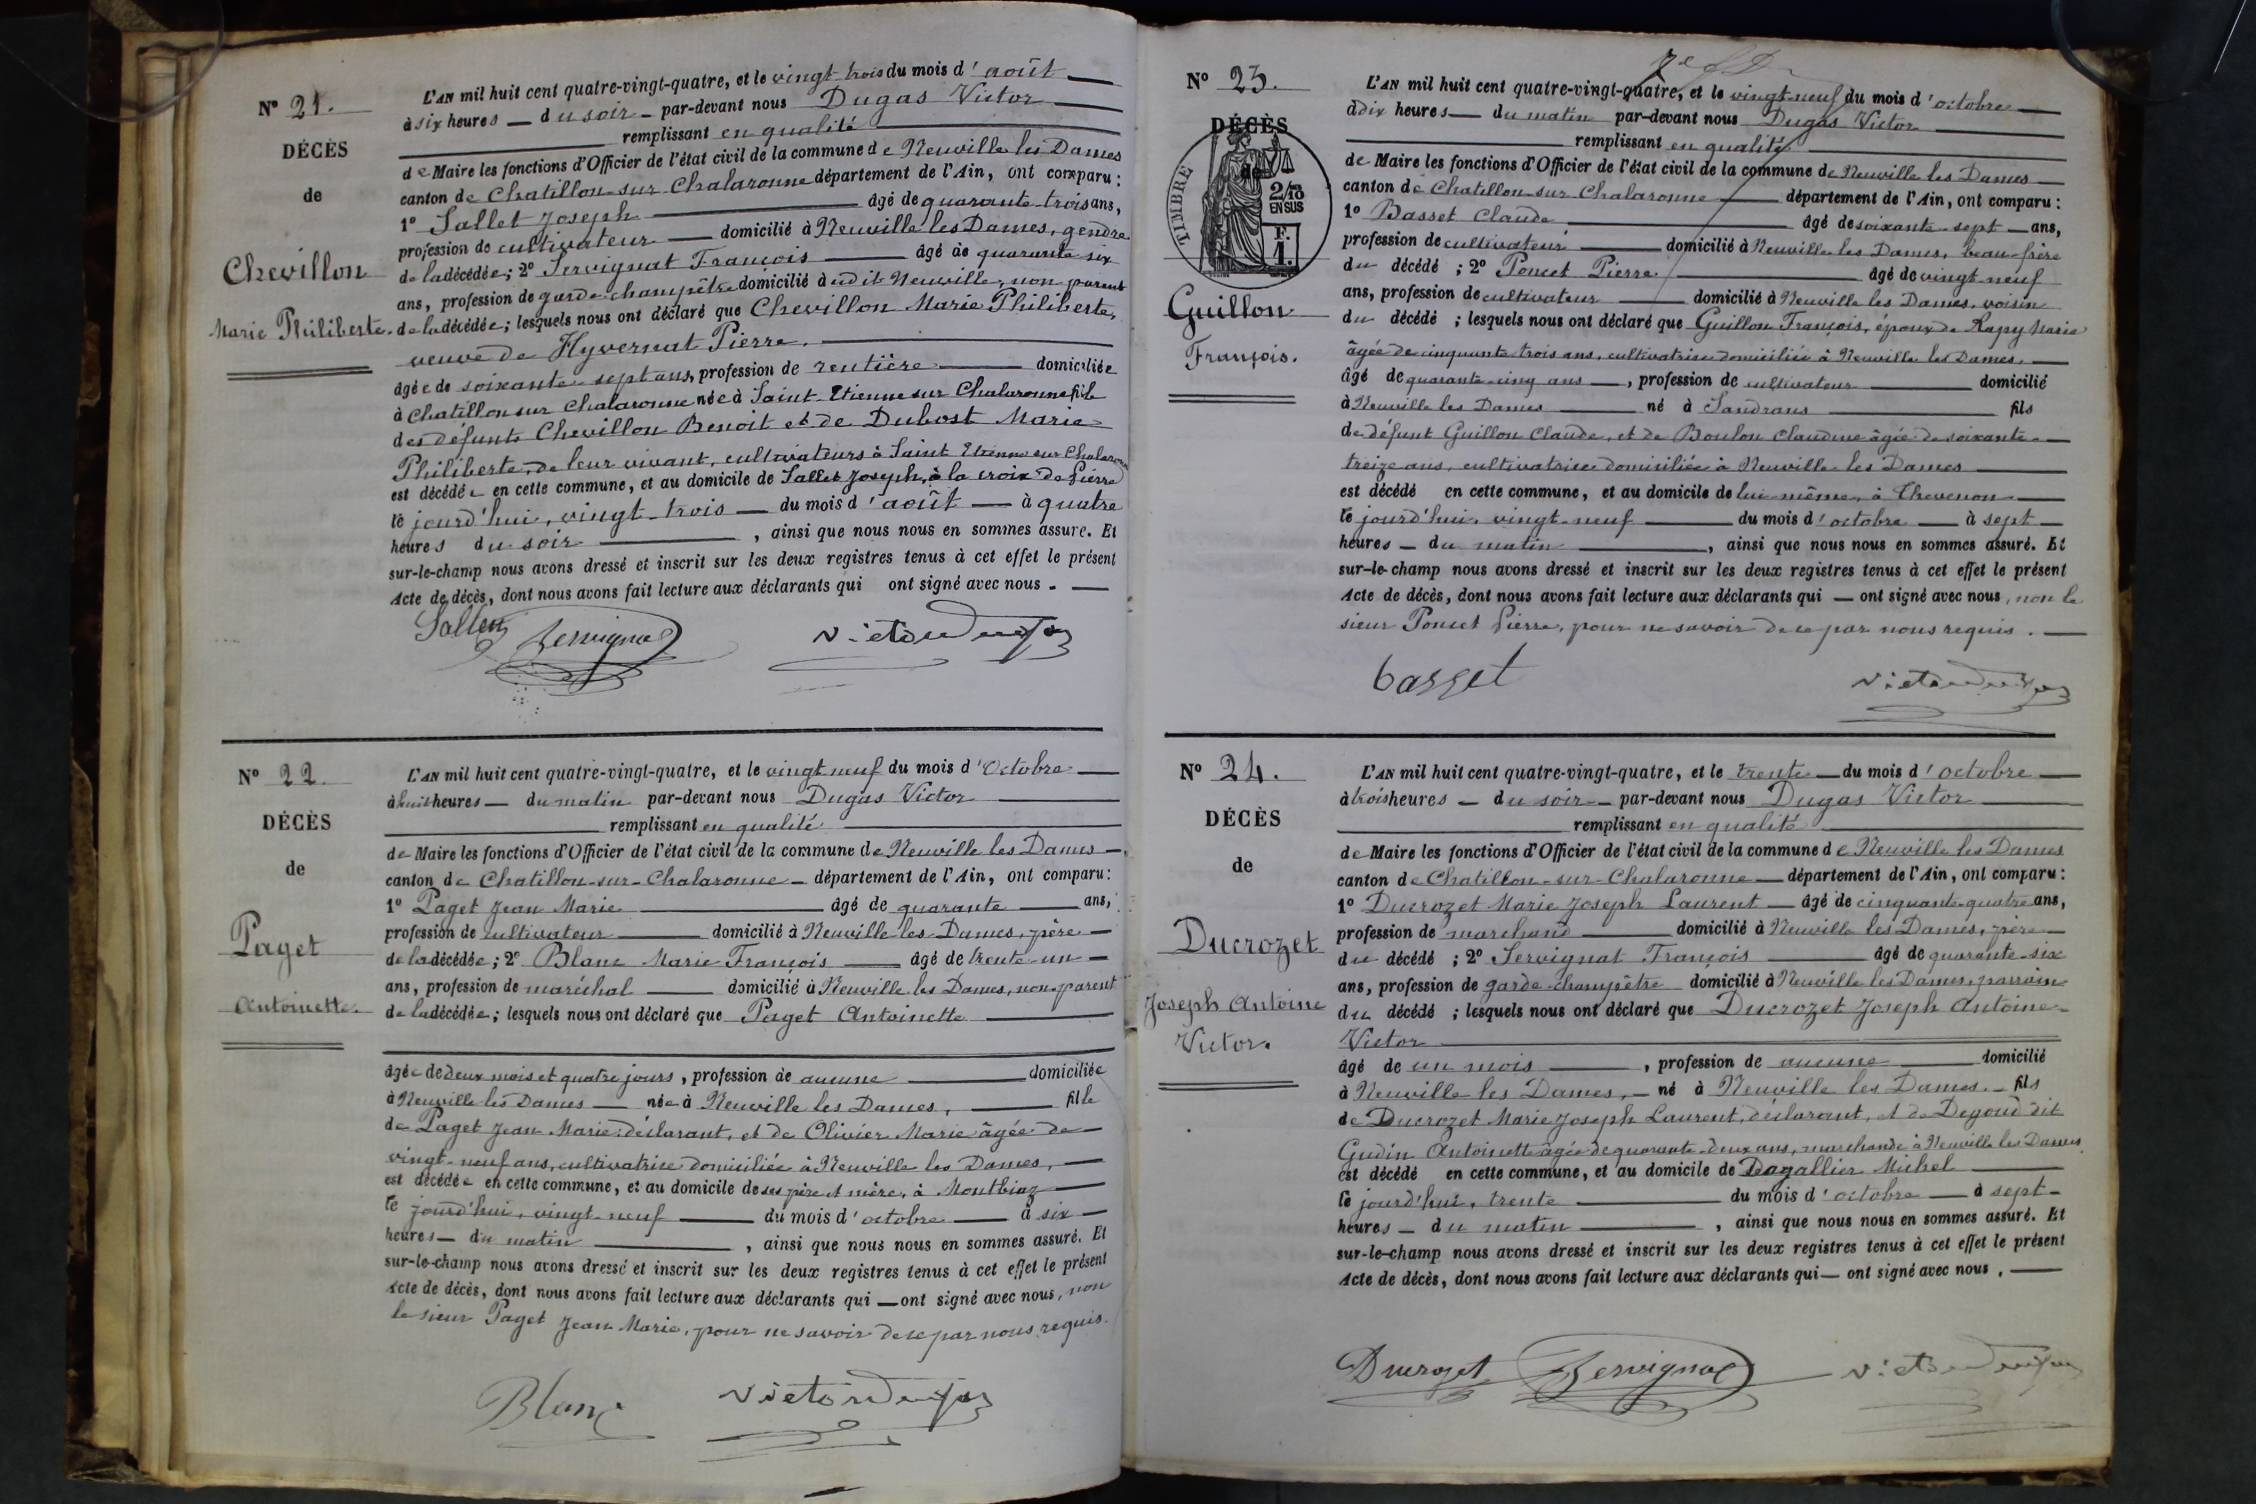 N° 21.
DÉCÈS
de
Chevillon
Marie Philiberte.
L'AN mil huit cent quatre-vingt-quatre, et le vingt-trois du mois d'août
à six heures du soir par-devant nous Dugas Victor
remplissant en qualité
de Maire les fonctions d'Officier de l'état civil de la commune de Neuville les Dames
canton de Chatillon-sur-Chalaronne département de l'Ain, ont comparu :
1° Sallet Joseph âgé de quarante-trois ans,
profession de cultivateur domicilié à Neuville les Dames, gendre
de la décédée ; 2° Servignat François âgé de quarante six
ans, profession de garde-champêtre domicilié à udit Neuville, non parent
de la décédée ; lesquels nous ont déclaré que Chevillon Marie Philiberte,
veuve de Hyvernat Pierre.
âgée de soixante-sept ans, profession de rentière domiciliée
à Chatillon sur Chalaronne née à Saint-Etienne sur Chalaronne fille
des défunts Chevillon Benoit et de Dubost Marie
Philiberte, de leur vivant, cultivateurs à Saint Etienne sur Chalaronne
est décédée en cette commune, et au domicile de Sallet Joseph, à la croix de Pierre
le jourd'hui, vingt-trois du mois d'août à quatre
heures du soir , ainsi que nous nous en sommes assuré. Et
sur-le-champ nous avons dressé et inscrit sur les deux registres tenus à cet effet le présent
Acte de décès, dont nous avons fait lecture aux déclarants qui ont signé avec nous.
Sallet Servignat Victor Dugas
N° 22.
DÉCÈS
de
Paget
Antoinette.
L'AN mil huit cent quatre-vingt-quatre, et le vingt neuf du mois d'Octobre
à huit heures du matin par-devant nous Dugas Victor
remplissant en qualité
de Maire les fonctions d'Officier de l'état civil de la commune de Neuville les Dames
canton de Chatillon-sur-Chalaronne département de l'Ain, ont comparu :
1° Paget Jean Marie âgé de quarante ans,
profession de cultivateur domicilié à Neuville les Dames, père
de la décédée ; 2° Blanc Marie François âgé de trente-un
ans, profession de maréchal domicilié à Neuville les Dames, non-parent
de la décédée ; lesquels nous ont déclaré que Paget Antoinette
âgée de deux mois et quatre jours, profession de aucune domiciliée
à Neuville les Dames née à Neuville les Dames, fille
de Paget Jean Marie déclarant, et de Olivier Marie âgée de
vingt-neuf ans, cultivatrice domiciliée à Neuville les Dames,
est décédée en cette commune, et au domicile de ses père et mère, à Montbiaz
le jourd'hui, vingt-neuf du mois d'octobre à six
heures du matin , ainsi que nous nous en sommes assuré. Et
sur-le-champ nous avons dressé et inscrit sur les deux registres tenus à cet effet le présent
Acte de décès, dont nous avons fait lecture aux déclarants qui ont signé avec nous, non
le sieur Paget Jean Marie, pour ne savoir de ce par nous requis.
Blanc Victor Dugas
N° 23.
DÉCÈS
de
TIMBRE
2/10
EN SUS
F.
1.
Guillon
François.
L'AN mil huit cent quatre-vingt-quatre, et le vingt-neuf du mois d'octobre
à dix heures du matin par-devant nous Dugas Victor
remplissant en qualité
de Maire les fonctions d'Officier de l'état civil de la commune de Neuville les Dames
canton de Chatillon-sur-Chalaronne département de l'Ain, ont comparu :
1° Basset Claude âgé de soixante-sept ans,
profession de cultivateur domicilié à Neuville les Dames, beau-frère
du décédé ; 2° Poncet Pierre âgé de vingt-neuf
ans, profession de cultivateur domicilié à Neuville les Dames, voisin
du décédé ; lesquels nous ont déclaré que Guillon François, époux de Rapy Marie
âgée de cinquante-trois ans, cultivatrice domiciliée à Neuville les Dames.
âgé de quarante-cinq ans, profession de cultivateur domicilié
à Neuville les Dames né à Sandrans fils
de défunt Guillon Claude, et de Boulon Claudine âgée de soixante-
treize ans, cultivatrice domiciliée à Neuville les Dames
est décédé en cette commune, et au domicile de lui-même, à Thevenon
le jourd'hui, vingt-neuf du mois d'octobre à sept
heures du matin , ainsi que nous nous en sommes assuré. Et
sur-le-champ nous avons dressé et inscrit sur les deux registres tenus à cet effet le présent
Acte de décès, dont nous avons fait lecture aux déclarants qui ont signé avec nous, non le
sieur Poncet Pierre, pour ne savoir de ce par nous requis.
basset Victor Dugas
N° 24.
DÉCÈS
de
Ducrozet
Joseph Antoine
Victor.
L'AN mil huit cent quatre-vingt-quatre, et le trente du mois d'octobre
à trois heures du soir par-devant nous Dugas Victor
remplissant en qualité
de Maire les fonctions d'Officier de l'état civil de la commune de Neuville les Dames
canton de Chatillon-sur-Chalaronne département de l'Ain, ont comparu :
1° Ducrozet Marie Joseph Laurent âgé de cinquante-quatre ans,
profession de marchand domicilié à Neuville les Dames, père
du décédé ; 2° Servignat François âgé de quarante-six
ans, profession de garde-champêtre domicilié à Neuville les Dames, parrain
du décédé ; lesquels nous ont déclaré que Ducrozet Joseph Antoine
Victor
âgé de un mois , profession de aucune domicilié
à Neuville les Dames, né à Neuville les Dames. fils
de Ducrozet Marie Joseph Laurent, déclarant, et de Degoud dit
Gudin Antoinette âgée de quarante-deux ans, marchande à Neuville les Dames
est décédé en cette commune, et au domicile de Dagallier Michel
le jourd'hui, trente du mois d'octobre à sept
heures du matin , ainsi que nous nous en sommes assuré. Et
sur-le-champ nous avons dressé et inscrit sur les deux registres tenus à cet effet le présent
Acte de décès, dont nous avons fait lecture aux déclarants qui ont signé avec nous.
Ducrozet Servignat Victor Dugas